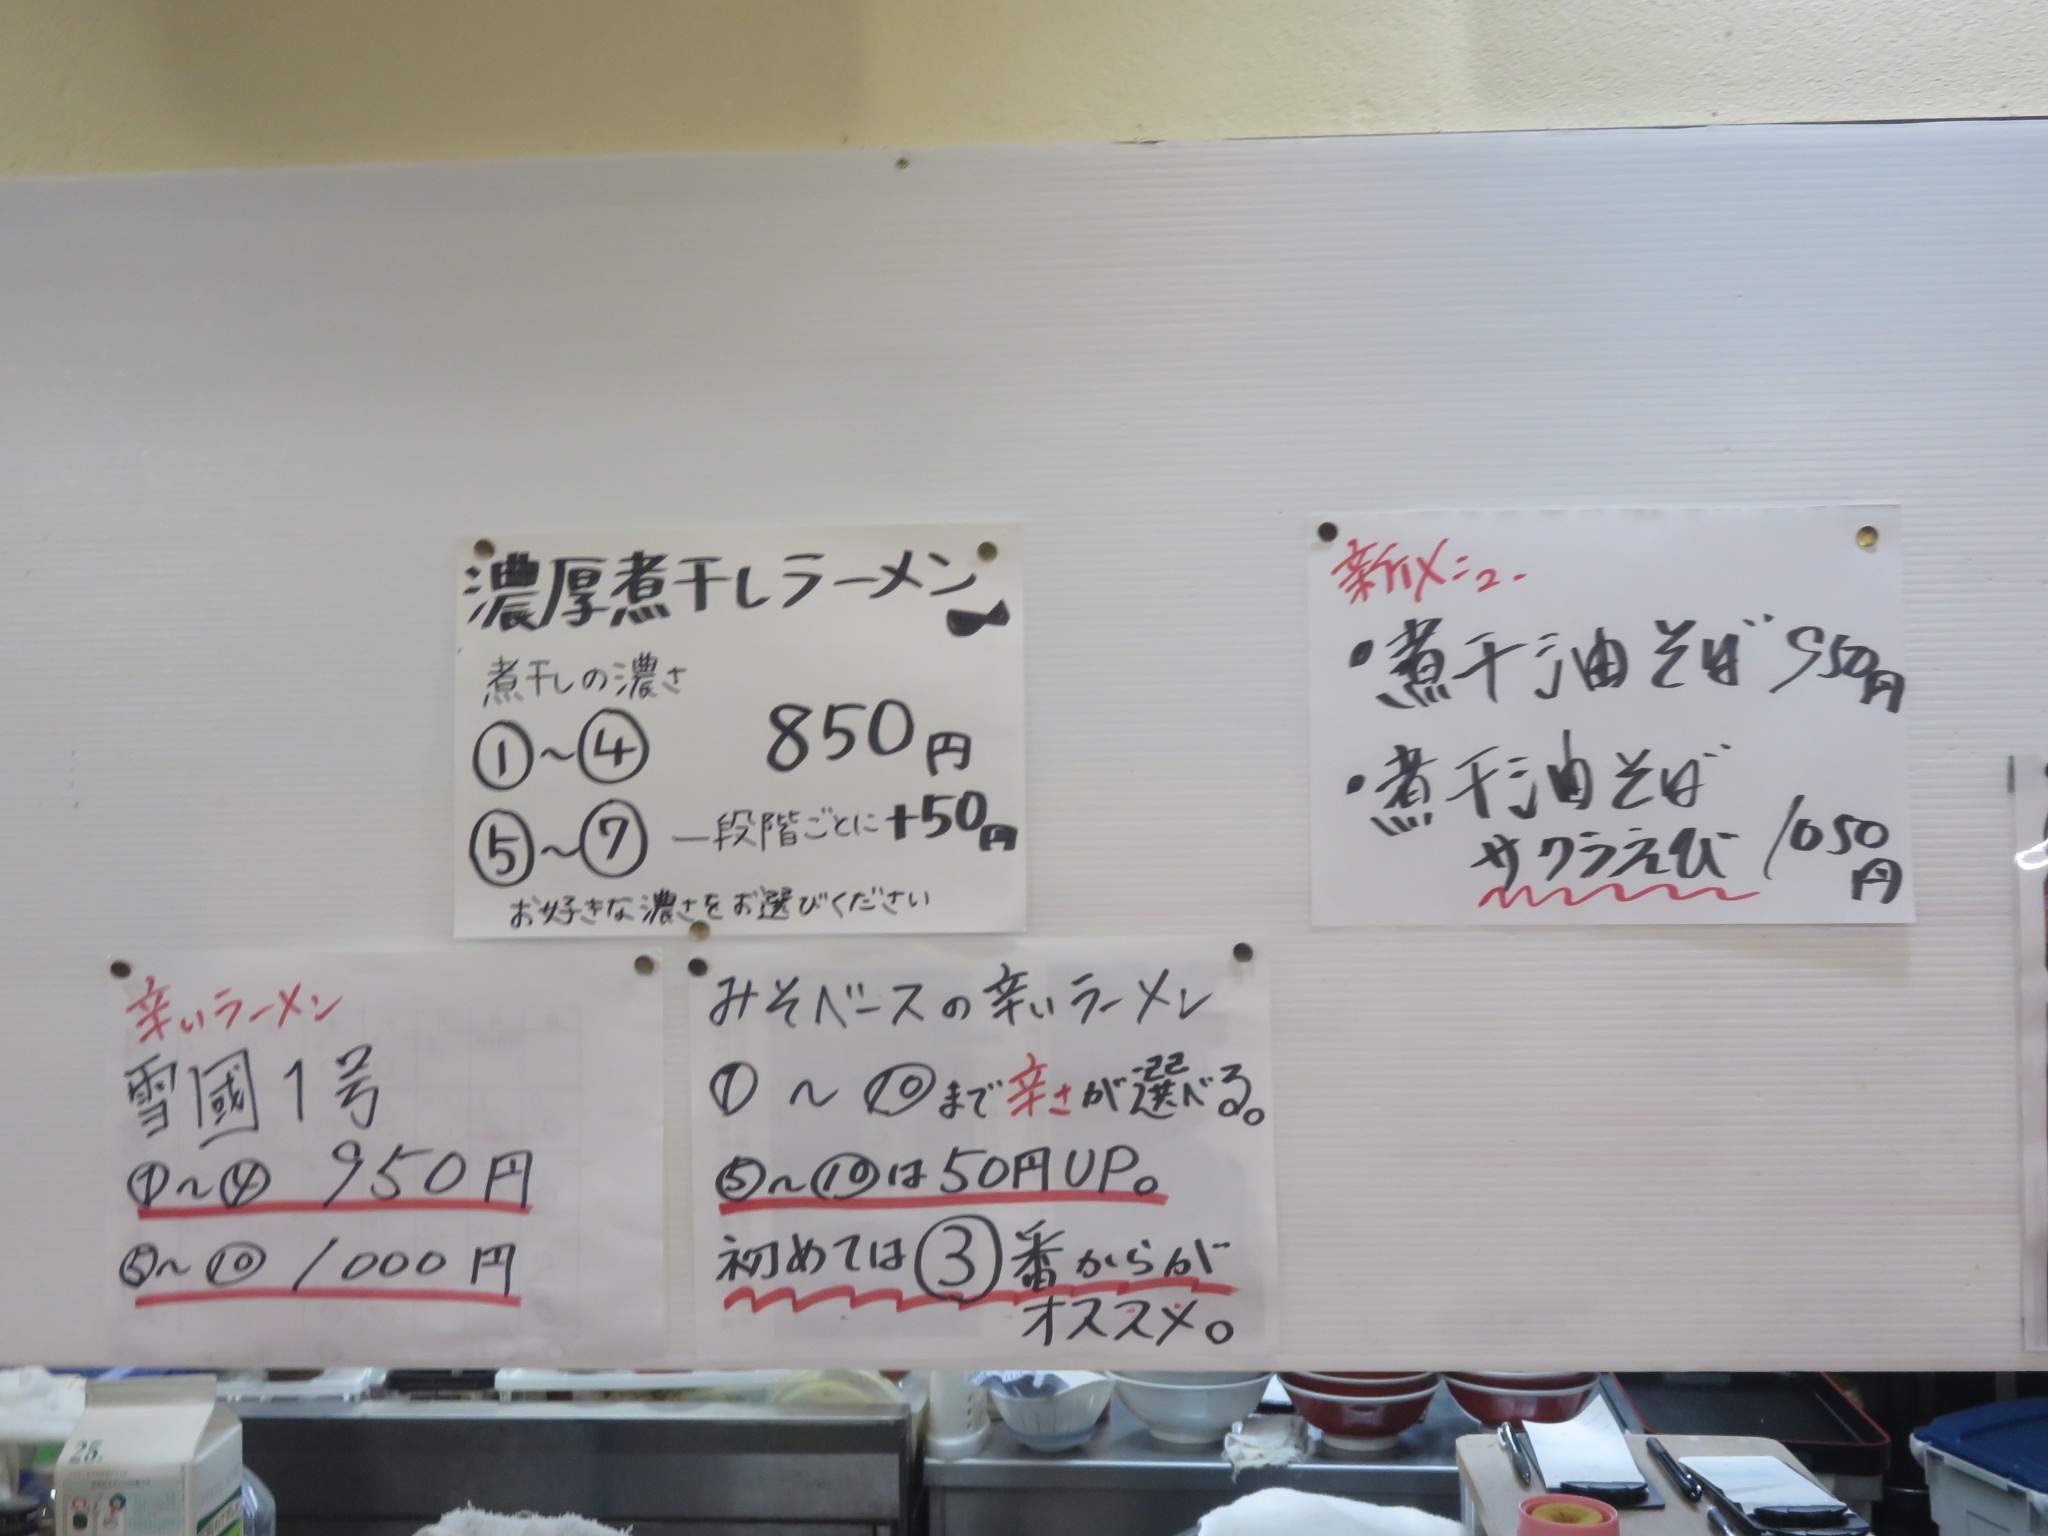 濃厚煮干しラーメン
煮干しの濃さ
①～④ 850円
⑤～⑦ 一段階ごとに+50円
お好きな濃さをお選びください
新メニュー
・煮干油そば 950円
・煮干油そば
サクラえび 1050円
辛いラーメン
雪國1号
①～④ 950円
⑤～⑩ 1000円
みそベースの辛いラーメン
①～⑩まで辛さが選べる。
⑤～⑩は50円UP。
初めては③番からが
オススメ。